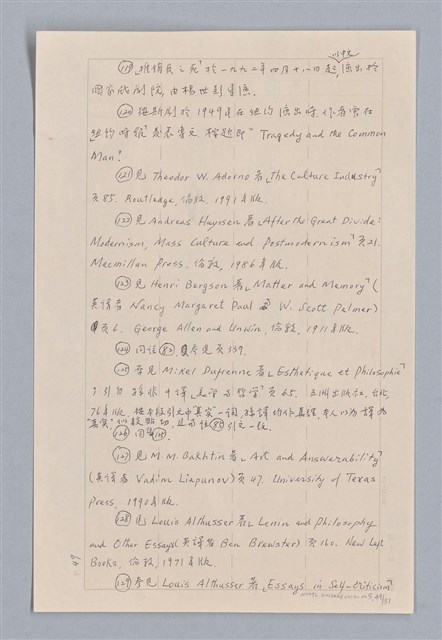 (119)「推銷員之死」於一九九二年四月十八日起,演出於
國家戲劇院,由楊世彭導演。
(120) 按斯劇於1949年在紐約演出時,作者曾在
紐約時報發表專文 標題即 "Tragedy and the Common
Man".
(121) 見 Theodor W. Adorno 著「The Culture Industry」
頁85. Routledge, 倫敦, 1991年版.
(122) 見 Andreas Huyssen 著「After the Great Divide:
Modernism, Mass Culture and Postmodernism」頁21.
Macmillan Press, 倫敦, 1986年版.
(123) 見 Henri Bergson 著「Matter and Memory」(
英譯者 Nancy Margaret Paul 及 W. Scott Palmer)
頁6. George Allen and Unwin, 倫敦, 1911年版.
(124) 同註(83), 參見頁339.
(125) 參見 Mikel Dufrenne 著「Esthétique et Philosophie」
孫非中譯「美學與哲學」頁65. 五洲出版社, 台北,
76年版.
(126) 同
(127) 見 M. M. Bakhtin 著「Art and Answerability」
(英譯者 Vadim Liapunov) 頁47. University of Texas
Press, 1990年版.
(128) 見 Louis Althusser 著「Lenin and Philosophy
and Other Essays」(英譯者 Ben Brewster) 頁160. New Left
Books, 倫敦, 1971年版.
(129) 參見 Louis Althusser 著「Essays in Self-Criticism」
P. 49